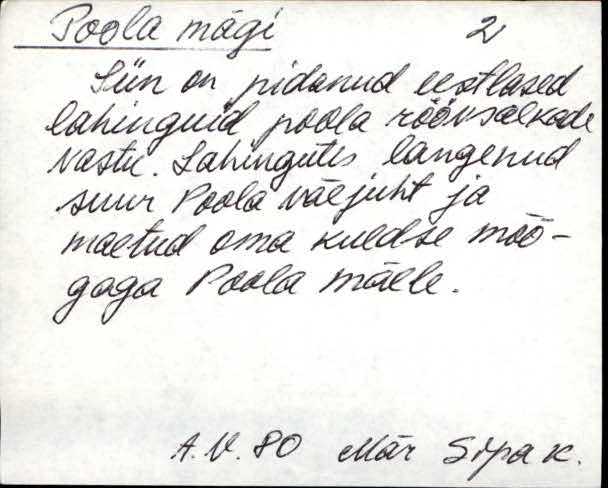 Poola mägi 2
Siin on pidanud eestlased
lahinguid poola röövsalkade
vastu. Lahingutes langenud
suur Poola väejuht ja
maetud oma kuldse mõõ-
gaga Poola mäele.
A.V. 80 Mär Sipa k.